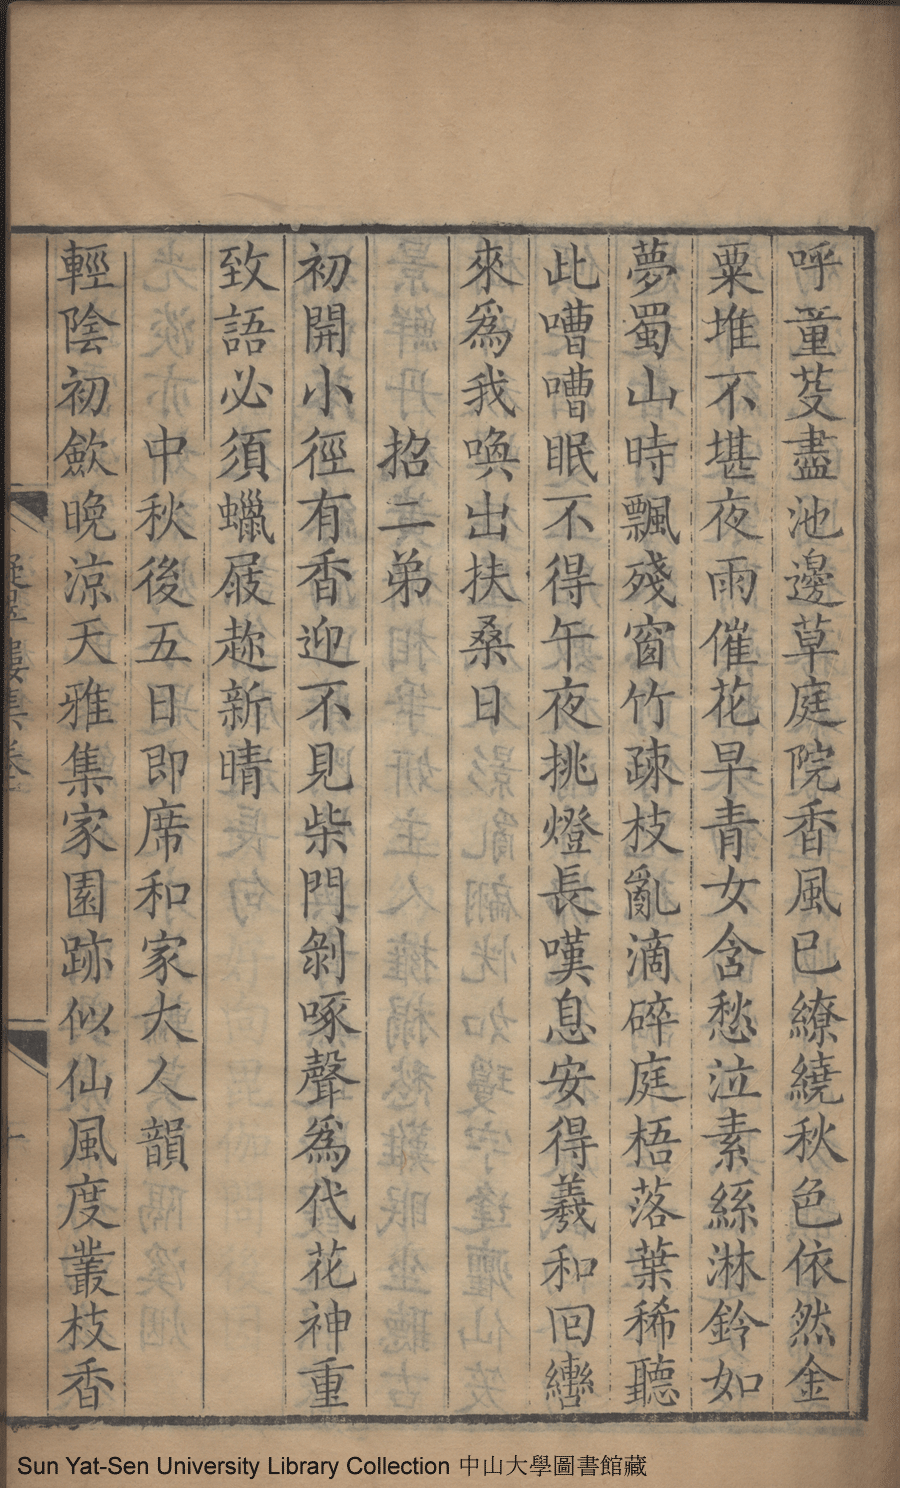 呼童芟盡池邊草庭院香風已繚繞秋色依然金
粟堆不堪夜雨催花早青女含愁泣素絲淋鈴如
夢蜀山時飄殘窗竹疎枝亂滴碎庭梧落葉稀聽
此嘈嘈眠不得午夜挑燈長嘆息安得羲和回轡
來爲我喚出扶桑日
招二弟
初開小徑有香迎不見柴門剝啄聲爲代花神重
致語必須蠟屐趂新晴
中秋後五日即席和家大人韻
輕陰初歛晚涼天雅集家園跡似仙風度叢枝香
樓集卷
Sun Yat-Sen University Library Collection 中山大學圖書館藏